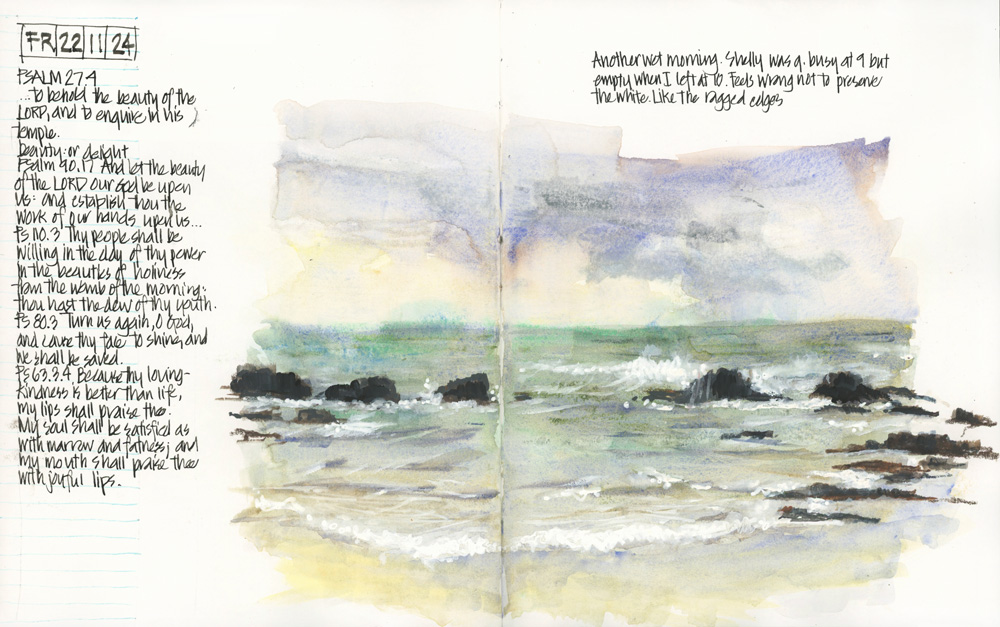 FR 22 11 24
PSALM 27.4
...to behold the beauty of the
LORD, and to enquire in his
temple.
beauty: or delight
Psalm 90.17 And let the beauty
of the LORD our God be upon
us: and establish thou the
work of our hands upon us...
Ps 110.3 Thy people shall be
willing in the day of thy power
in the beauties of holiness
from the womb of the morning:
thou hast the dew of thy youth.
Ps 80.3 Turn us again, O God,
and cause thy face to shine, and
we shall be saved.
Ps 63.3.4. Because thy loving-
kindness is better than life,
my lips shall praise thee.
My soul shall be satisfied as
with marrow and fatness; and
my mouth shall praise thee
with joyful lips.
Another wet morning. Shelly was q. busy at 9 but
empty when I left at 10. Feels wrong not to preserve
the white. Like the ragged edges